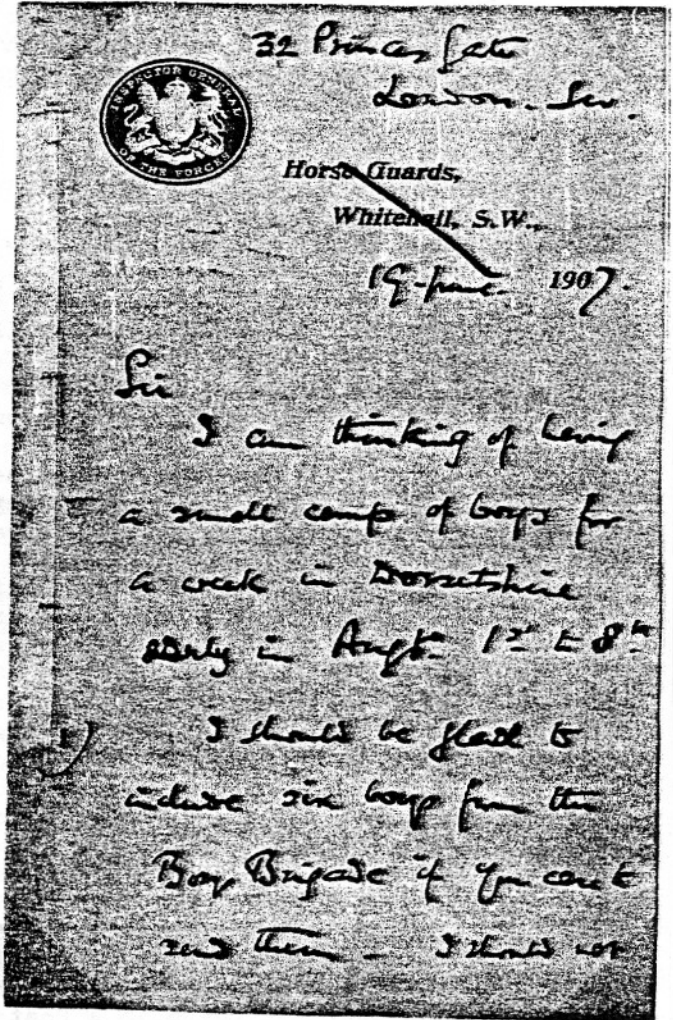 32 Princes Gate
London. SW.
INSPECTOR GENERAL
OF THE FORCES
Horse Guards,
Whitehall, S.W.,
19 June 1907.
Sir
I am thinking of having
a small camp of boys for
a week in Dorsetshire
early in Augt. 1st to 8th
I should be glad to
include six boys from the
Boys Brigade if you care to
send them — I should not